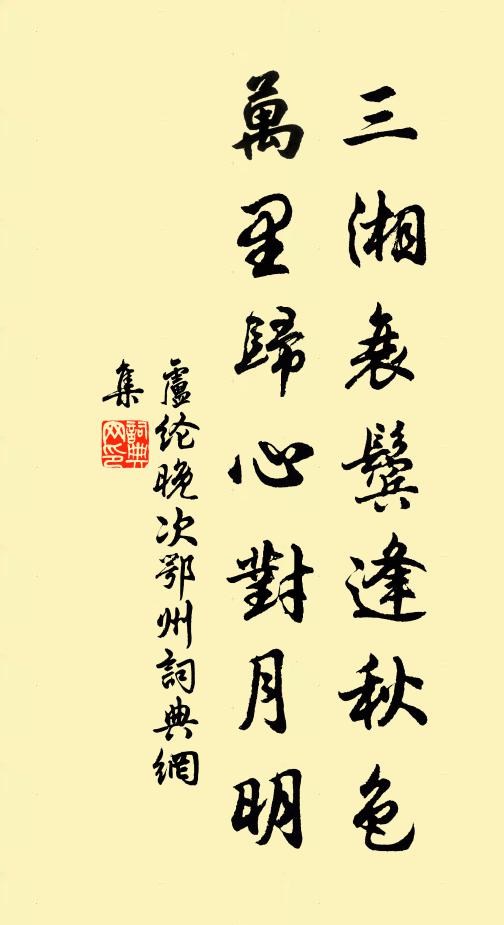 三湘衰鬢逢秋色
萬里歸心對月明
盧纶晚次鄂州詞典網
集
詞典网印